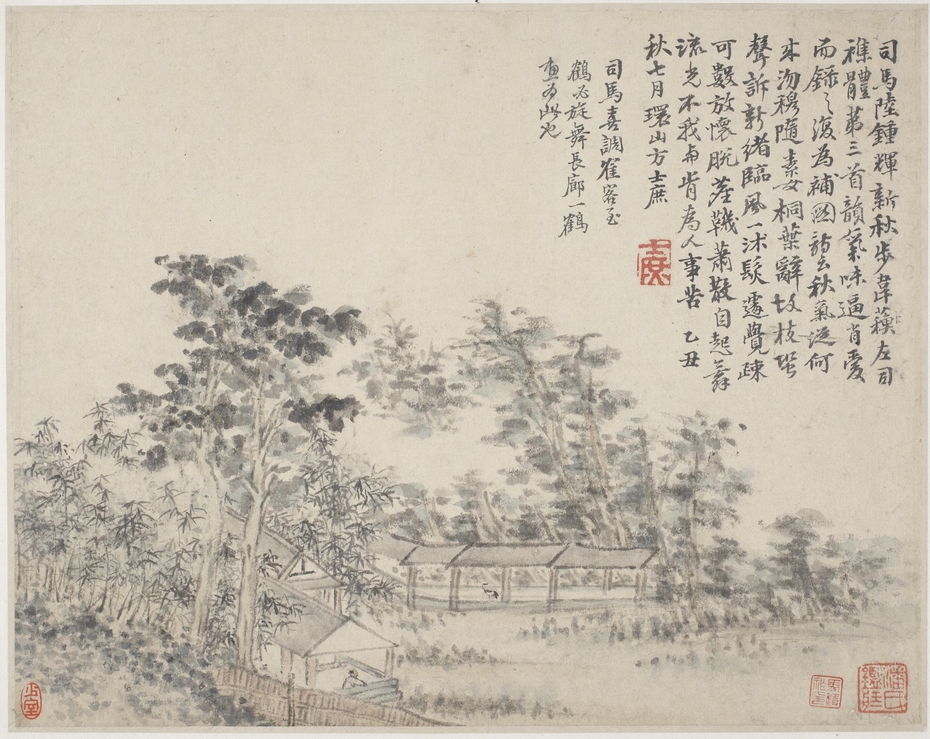 司馬陸鍾輝新秋步韋蘓左司
襍體第三首韻氣味逼肖愛
而錄之復為補圖 秋氣從何
来沕穆隨素女桐葉辭故枝蛩
聲訴新緒臨風一沐髮遽覺疎
可數放懷脱羈蕭散自起舞
流光不我与肯為人事苦 乙丑
秋七月環山方士庶
司馬喜調崔客至
鶴必旋舞長廊一鶴
畫為此也
士庶